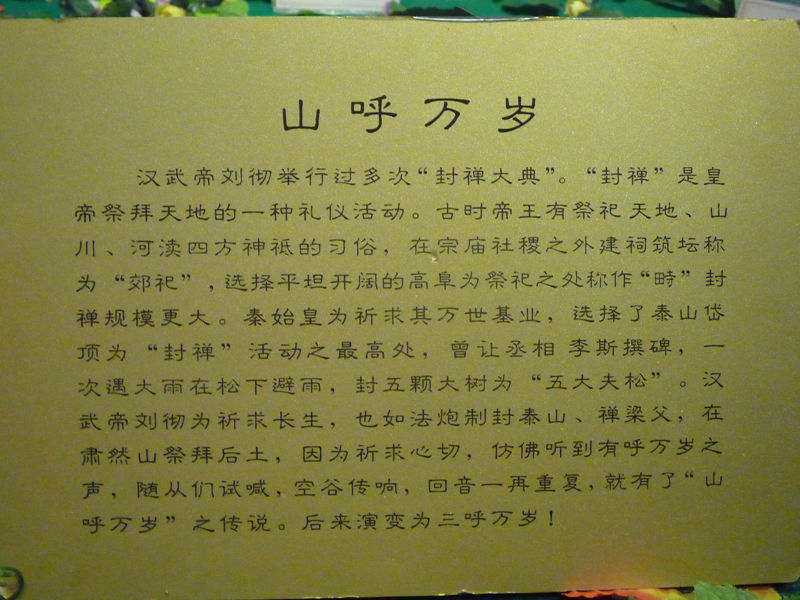 山呼万岁
汉武帝刘彻举行过多次“封禅大典”。“封禅”是皇
帝祭拜天地的一种礼仪活动。古时帝王有祭祀天地、山
川、河渎四方神祗的习俗，在宗庙社稷之外建祠筑坛称
为“郊祀”，选择平坦开阔的高阜为祭祀之处称作“畤”封
禅规模更大。秦始皇为祈求其万世基业，选择了泰山岱
顶为“封禅”活动之最高处，曾让丞相李斯撰碑，一
次遇大雨在松下避雨，封五颗大树为“五大夫松”。汉
武帝刘彻为祈求长生，也如法炮制封泰山、禅梁父，在
肃然山祭拜后土，因为祈求心切，仿佛听到有呼万岁之
声，随从们试喊，空谷传响，回音一再重复，就有了“山
呼万岁”之传说。后来演变为三呼万岁！